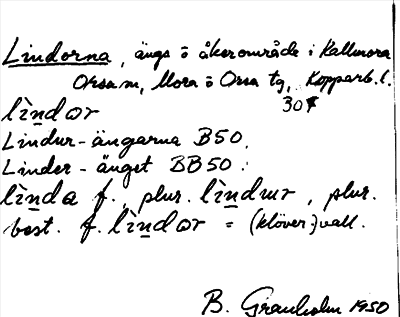 Lindorna, ängs o åkerområde i Kallmora
Orsa sn, Mora o Orsa tg, Kopparb. l.
30
lìndọr
Lindur-ängarna B50.
Linder-änget BB50.
lìnda f., plur. lìndur, plur.
best. f. lìndọr = (klöver-)vall.
B. Granholm 1950